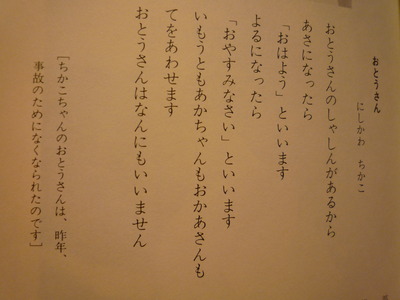 おとうさん
にしかわ ちかこ
おとうさんのしゃしんがあるから
あさになったら
「おはよう」といいます
よるになったら
「おやすみなさい」といいます
いもうともあかちゃんもおかあさんも
てをあわせます
おとうさんはなんにもいいません
［ちかこちゃんのおとうさんは、昨年、
事故のためになくなられたのです］